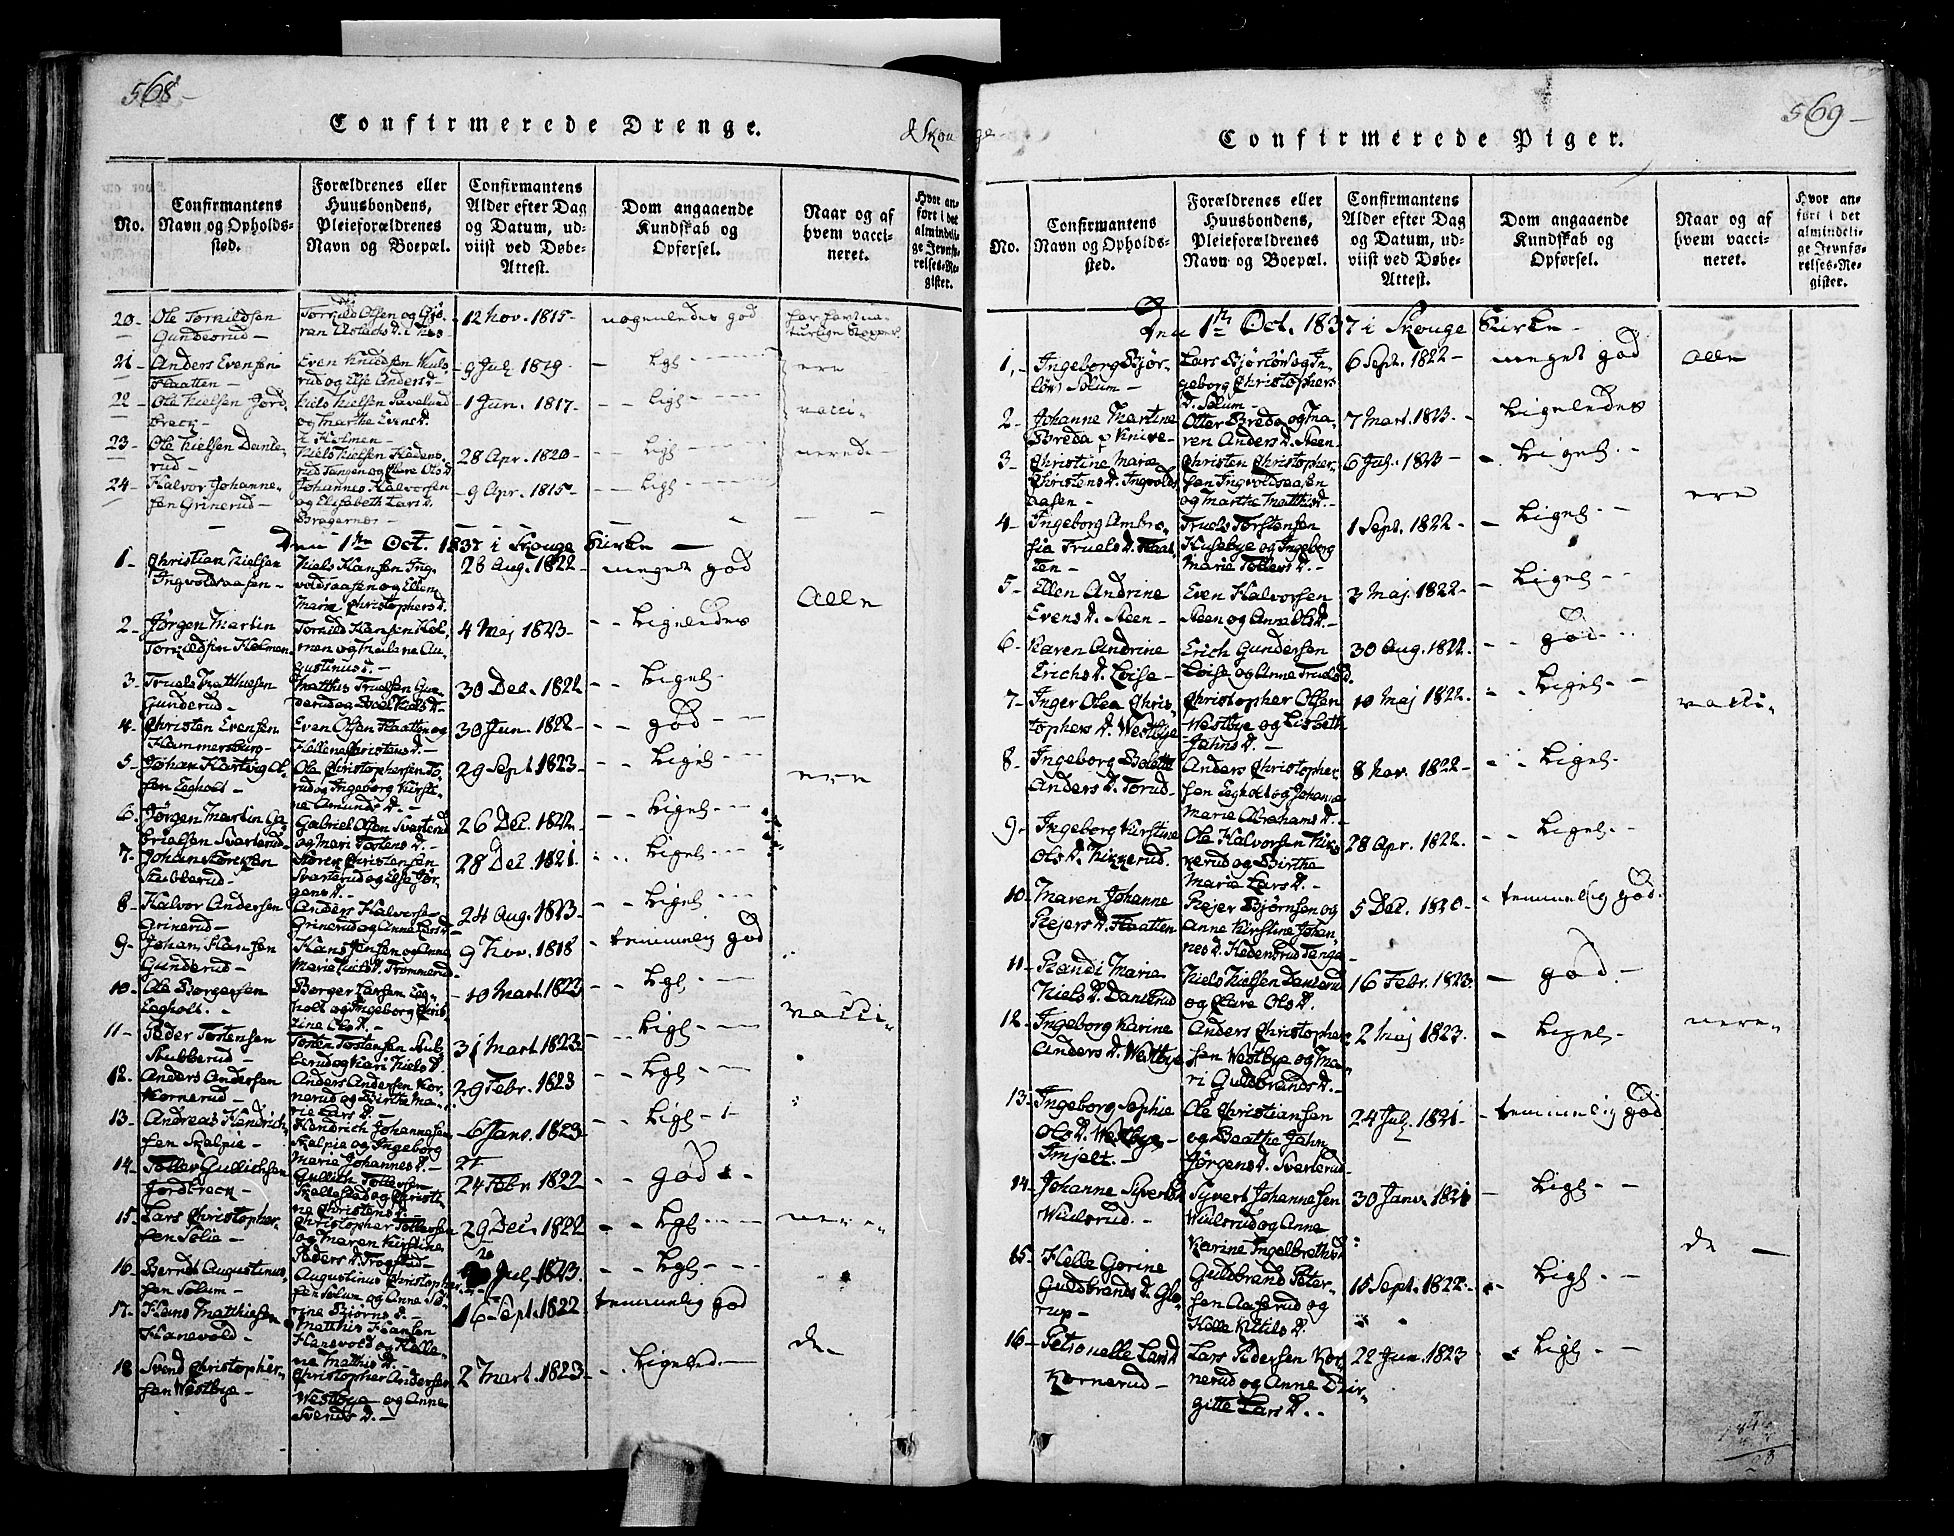 568-
Confirmerede Drenge.
& Skou
No.
Confirmantens
Navn og Opholds-
sted.
Forældrenes eller
Huusbondens,
Pleieforældrenes
Navn og Boepæl.
Confirmantens
Alder efter Dag
og Datum, ud-
viist ved Døbe-
Attest.
Dom angaaende
Kundskab og
Opførsel.
Naar og af
hvem vacci-
neret.
Hvor an-
ført i det
almindeli-
ge Jevnfø-
relses-Re-
gister.
20- Ole Torkildsen
Gunderud-
Torkild Olsen og
12 Nov. 1815-
nogenledes god
21- Anders Evensen
Flaatten-
Even Knudsen
rud og Else Andersd-
9 Jul. 1819-
Ligl
ere
22- Ole Nielsen Jord-
breck-
Niels Nielsen
og Marthe Evensd.
i Holmen-
1 Jun. 1817-
Ligl
vacci-
23- Ole Nielsen Dante-
rud-
Niels Nielsen Hedens-
rud Tangen og Olsd.
28 Apr. 1820-
Ligl
nerede-
24- Halvor Johanne-
sen Grinerud-
Johannes Halvorsen
og Elisabeth Larsd.
Bragernes-
9 Apr. 1815-
Ligl
Den 1ste Oct. 1837 i Skouge Kirke-
1- Christian Nielsen
Ingvoldsaasen-
Niels Hansen Ing-
voldsaasen og Ellen
Marie Christophersd.
28 Aug. 1822-
meget god
Alle
2- Jørgen Martin
Torkildsen Holmen-
Torkild Hansen Hol-
men og Helene Au-
gustinusd.-
4 Maj 1823-
Ligeledes
3- Truels Matthiesen
Gunderud-
Matthis Truelsen Gun-
derud og Nielsd.-
30 Dec. 1822
Ligel-
4- Christen Evensen
Hammersburg-
Even Olsen Flaatten og
Hellene Christensd.-
30 Jun. 1822-
god
5- Johan Hartvig Ol-
sen Eegholt-
Ole Christophersen To-
rud og Ingeborg Kirsti-
ne Amundsd.-
29 Sept 1823-
Ligel-
ere
6- Jørgen Martin Ga-
brielsen Svarterud-
Gabriel Olsen Svarterud
og Mari Torstensd.-
26 Dec. 1822-
Ligel-
7- Johan Størensen
Stubberud-
Christensen
Svarterud og Else Jør-
gensd.
28 Dec. 1821.
Ligel-
8- Halvor Andersen
Grinerud-
Anders Halvorse-
Grinerud og Anne Larsd-
24 Aug. 1823-
Ligel-
9- Johan Hansen
Gunderud-
Hans Jensen og Anne
Marie Nielsd. Trommerud-
9 Nov. 1818
temmelig god
10- Ole Børgersen
Eegholt.-
Børger Larsen Eeg-
holt og Ingeborg Chris-
tine Olsd.-
10 Mart. 1823
Ligl
vacci-
11- Peder Torstensen
Stubberud-
Torsten Torstensen Stub-
berud og Kari Nielsd.
31 Mart. 1823-
Ligl
12. Anders Andersen
Kornerud-
Anders Andersen Kor-
nerud og Birthe Ma-
rie Larsd.-
29 Febr. 1823
Ligl-
13- Andreas Hendrich-
sen Skalpie-
Hendrich Johannesen
Skalpie og Ingeborg
Marie Johannesd.-
6 Janv. 1823-
Ligl-
14- Toller Gullichsen
Jordbreck-
Gullich Tollersen
Skallestad og Christi-
ne Christensd.-
24 Febr. 1822
god-
15- Lars Christopher-
sen Solie-
Christopher Tollersen
og Maren Kirstine
Pedersd. Trogstad-
29 Dec. 1822
Ligl-
nere-
16- Berndt Augustinus-
sen Solum-
Augustinus Christopher-
sen Solum og Anne So-
rine Bjørnsd.-
20 Jul. 1823.
Ligl-
17- Hans Matthiesen
Hanevold-
Matthis Hansen
Hanevold og Helle-
ne Matthisd.-
16 Sept. 1822
temmelig god
18 Svend Christopher-
sen Westbye-
Christopher Andersen
Westbye og Anne
Svendsd.-
2 Mart. 1823-
Ligeled.-
de-
569-
ge-
Confirmerede Piger.
No.
Confirmantens
Navn og Opholds-
sted.
Forældrenes eller
Huusbondens,
Pleieforældrenes
Navn og Boepæl.
Confirmantens
Alder efter Dag
og Datum, ud-
viist ved Døbe-
Attest.
Dom angaaende
Kundskab og
Opførsel.
Naar og af
hvem vacci-
neret.
Hvor an-
ført i det
almindeli-
ge Jevnfø-
relses-Re-
gister.
Den 1ste Oct. 1837 i Skouge Kirke-
1,- Ingeborg Bjør-
Solum-
Lars og In-
geborg Christophers
D. Solum-
6 Sept. 1822-
meget god
Alle
2- Johanne Martine
Breda Knive-
Otter Breda og Ma-
ren Andersd. Steen-
7 Mart. 1823-
Ligeledes
3- Christine Marie
Christensd. Ingvolds-
aasen-
Christen Christopher-
sen Ingvoldsaasen
og Marthe Matthisd.-
6 Jul. 1823
Ligel-
ere
4- Ingeborg Ambro-
sia Truelsd. Flaat-
ten-
Truels Torstensen
Husebye og Ingeborg
Marie Tollersd.-
1 Sept. 1822-
Ligel-
5- Ellen Andrine
Evensd. Steen-
Even Halvorsen
Steen og Anne Olsd.-
3 Maj 1822-
Ligel-
6- Karen Andrine
Erichsd. Loise-
Erich Gundersen
Loise og Anne Truelsd
30 Aug. 1822.
god-
7- Inger Olea Chris-
tophersd. Westbye
Christopher Olsen
Westbye og Lisbeth
Jahnsd.-
10 Maj 1822.
Ligel-
vacci-
8- Ingeborg Bolette
Andersd. Torud-
Anders Christopher-
sen Eegholt og Johanne
Marie Abrahamsd.-
8 Nov. 1822-
Ligel-
9- Ingeborg Kirstine
Olsd. Kikkerud.
Ole Halvorsen Kik-
kerud og Birthe
Marie Larsd.-
28 Apr. 1822.
Ligel-
10- Maren Johanne
Rejersd. Flaatten
Rejer Bjørnsen og
Anne Kirstine Johan-
nesd. Hedensrud Tange-
5 Dec. 1820-
temmelig god.
11- Randi Marie
Nielsd. Danserud
Niels Nielsen Danserud
og Olsd.
16 Febr. 1823.
god-
12- Ingeborg Karine
Andersd. Westbye
Anders Christopher-
sen Westbye og Ma-
ri Guldbrandsd.-
2 Maj 1823.
Ligel-
nere-
13- Ingeborg Sophie
Olsd. Westbye-
Imjelt.-
Ole Christiansen
og Beathe Jahn
Jørgensd. Svarterud-
24 Jul. 1821-
temmelig god
14- Johanne Syvertsd
Wiulsrud.-
Syvert Johannesen
Wiulsrud og Anne
Karine Ingelbrethsd
30 Janv. 1821
Ligl-
15- Helle Gorine
Guldbrandsd. Glo-
rup-
Guldbrand Peter-
sen Aaserud og
Helle Kittilsd.
15 Sept. 1822-
Ligl-
de-
16- Petronelle Larsd
Kornerud-
Lars Pedersen Kor-
nerud og Anne Bir-
gitte Larsd.-
22 Jun. 1823
Ligl-
28